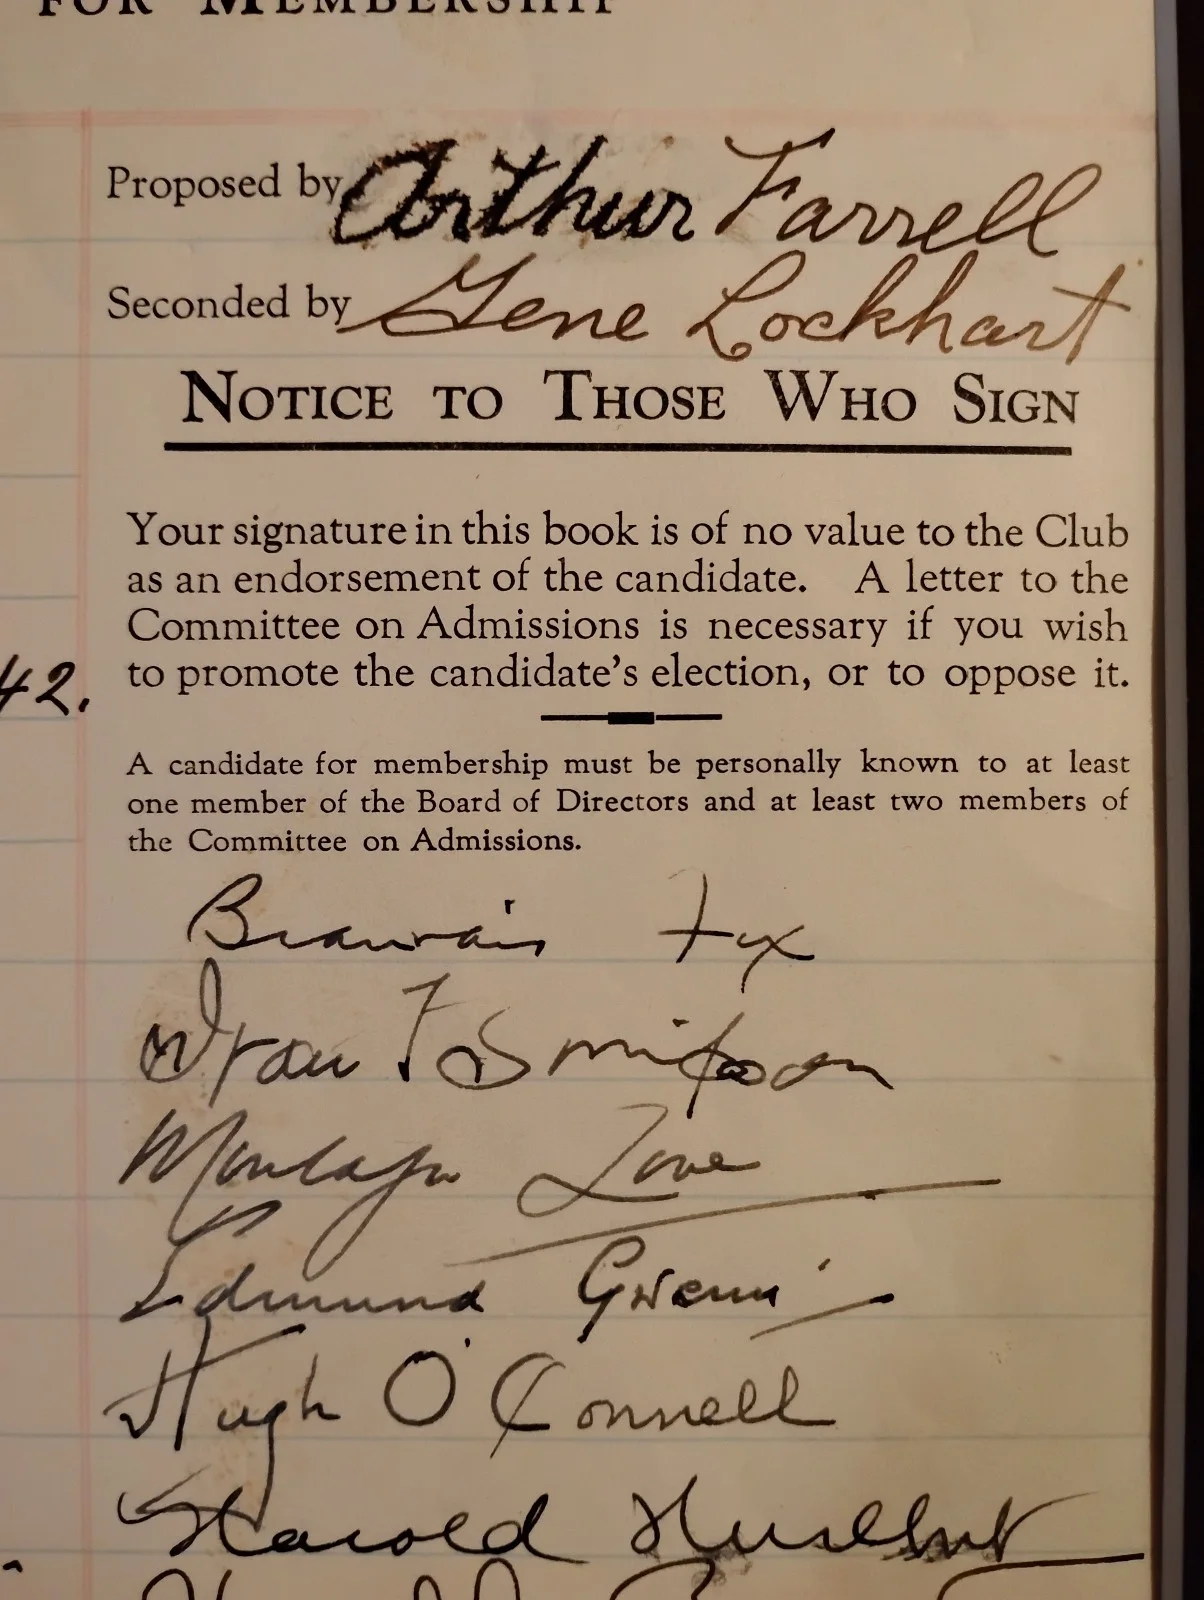 FOR MEMBERSHIP
Proposed by Arthur Farrell
Seconded by Gene Lockhart
NOTICE TO THOSE WHO SIGN
Your signature in this book is of no value to the Club
as an endorsement of the candidate. A letter to the
Committee on Admissions is necessary if you wish
42. to promote the candidate's election, or to oppose it.
A candidate for membership must be personally known to at least
one member of the Board of Directors and at least two members of
the Committee on Admissions.
Beauvais Fox
F Simpson
Montagu Love
Edmund Gwenn
Hugh O'Connell
Harold Hurlbut